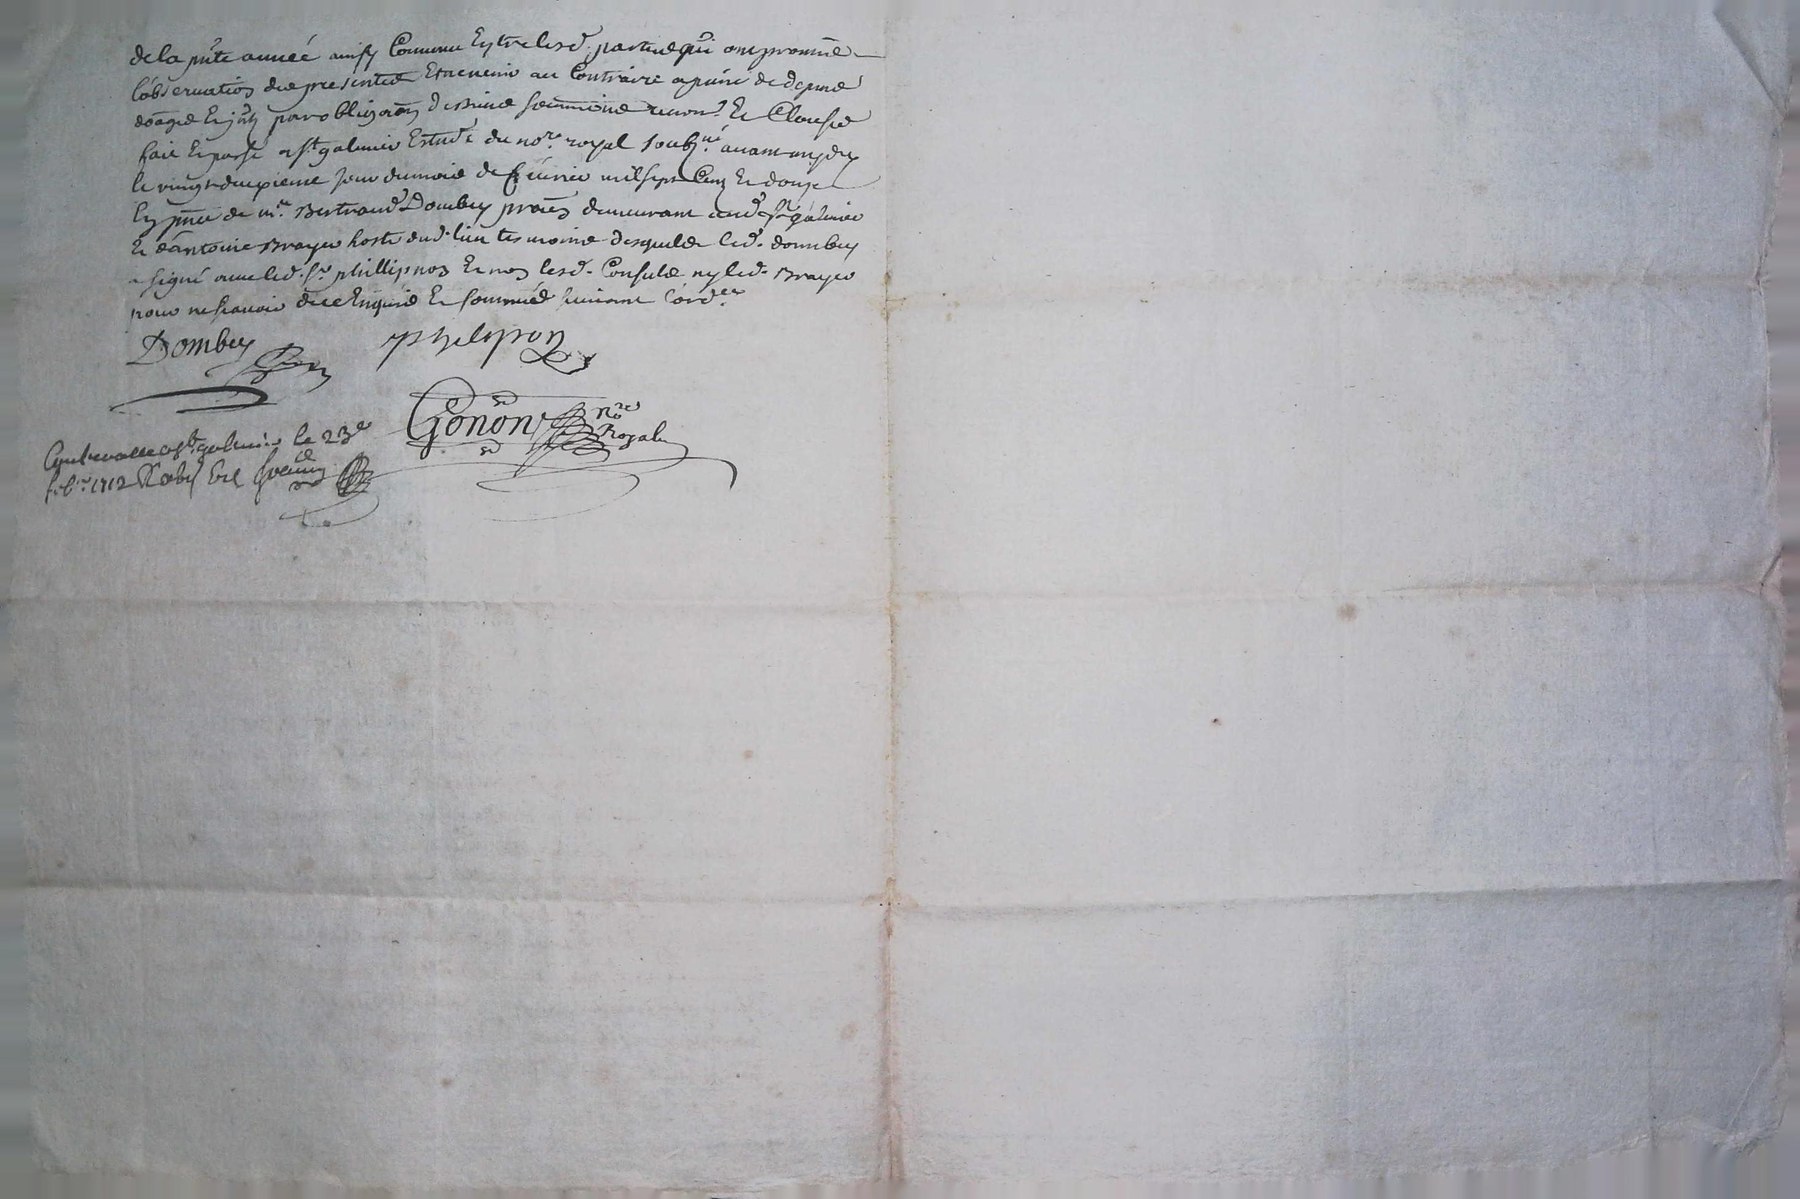 de la pnte année ainsy Convenu Entre lesd. parties qui ont promis
l'observation des presentes Et ne venir au Contraire a peine de depens
domages Et jnts par obligaon des biens soumions renons Et Clauses
fait Et passé a st galmier Estude du nore royal soubné avant mydy
le vingt deuxieme jour du mois de février mil sept Cens Et douze
En pnce de me Bertrand Dombey demeurant aud. st galmier
Et d'antoine Brayer hoste dud. lieu tesmoins desquels led. dombey
a signé avec led. sr phillipon Et non lesd. Consuls ny led. Brayer
pour ne scavoir de ce Enquis Et sommés suivant l'ordce
Dombey phelipon
Gonon Nore Royal
Controllé a st galmier le 23e
feb. 1712